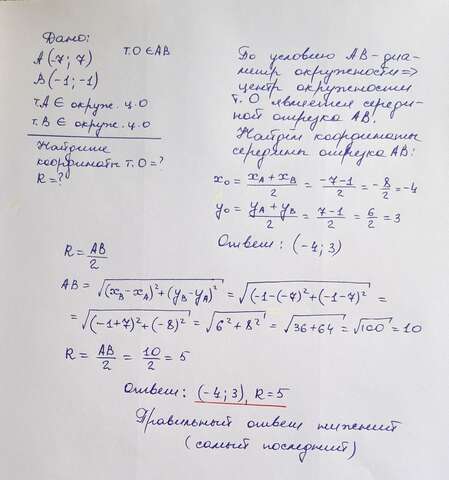 Дано:
A(-7; 7) т.О ∈ AB
B(-1; -1)
т.A ∈ окруж. ц.О
т.B ∈ окруж. ц.О
Найдите
координаты т.О = ?
R = ?
По условию AB - диа-
метр окружности =>
центр окружности
т.О является середи-
ной отрезка AB.
Найдём координаты
середины отрезка AB:
x₀ = (x_A + x_B)/2 = (-7-1)/2 = -8/2 = -4
y₀ = (y_A + y_B)/2 = (7-1)/2 = 6/2 = 3
Ответ: (-4; 3)
R = AB/2
AB = √((x_B - x_A)² + (y_B - y_A)²) = √((-1-(-7)² + (-1-7)²) =
= √((-1+7)² + (-8)²) = √(6² + 8²) = √(36+64) = √100 = 10
R = AB/2 = 10/2 = 5
Ответ: (-4; 3), R = 5
Правильный ответ нижний
(самый последний)